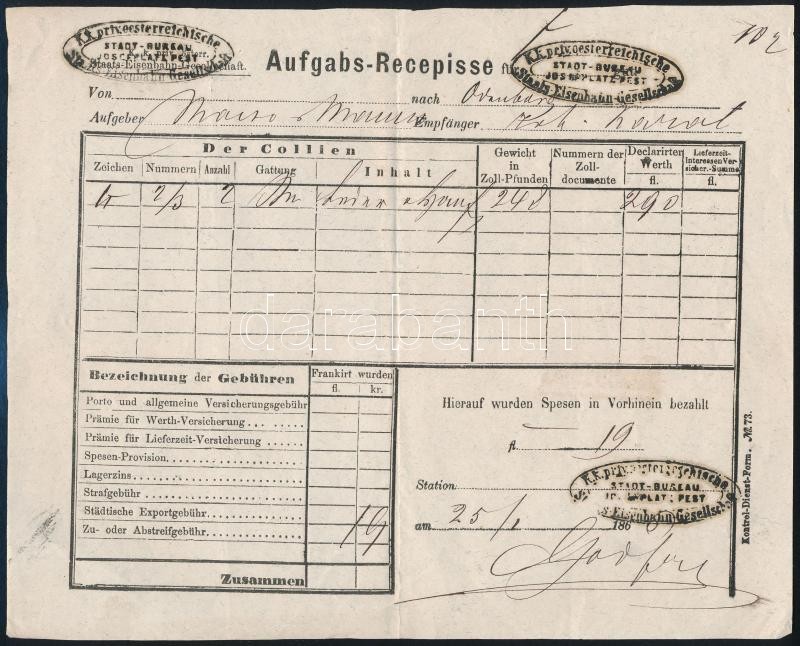 K.k. priv. oesterreichische
STADT-BUREAU
JOSEFPLATZ PEST
Staats-Eisenbahn-Gesellschaft
K. k. priv. österr.
Staats-Eisenbahn-Gesellschaft.
Aufgabs-Recepisse
K.k. priv. oesterreichische
STADT-BUREAU
JOSEFPLATZ PEST
Staats-Eisenbahn-Gesellschaft
102
Von nach Odenburg
Aufgeber Empfänger
Der Collien
Zeichen Nummern Anzahl Gattung Inhalt
Gewicht in Zoll-Pfunden
Nummern der Zoll-documente
Declarirter Werth fl.
Lieferzeit-Interessen Versicher.-Summe fl.
2/3 2 248 290
darabanth
Bezeichnung der Gebühren Frankirt wurden
fl. kr.
Porto und allgemeine Versicherungsgebühr
Prämie für Werth-Versicherung
Prämie für Lieferzeit-Versicherung
Spesen-Provision
Lagerzins
Strafgebühr
Städtische Exportgebühr 19
Zu- oder Abstreifgebühr
Zusammen
Hierauf wurden Spesen in Vorhinein bezahlt
fl. — 19
K.k. priv. oesterreichische
STADT-BUREAU
JOSEFPLATZ PEST
Staats-Eisenbahn-Gesellschaft
Station
am 25/1 186
Kontrol-Dienst-Form. № 73.